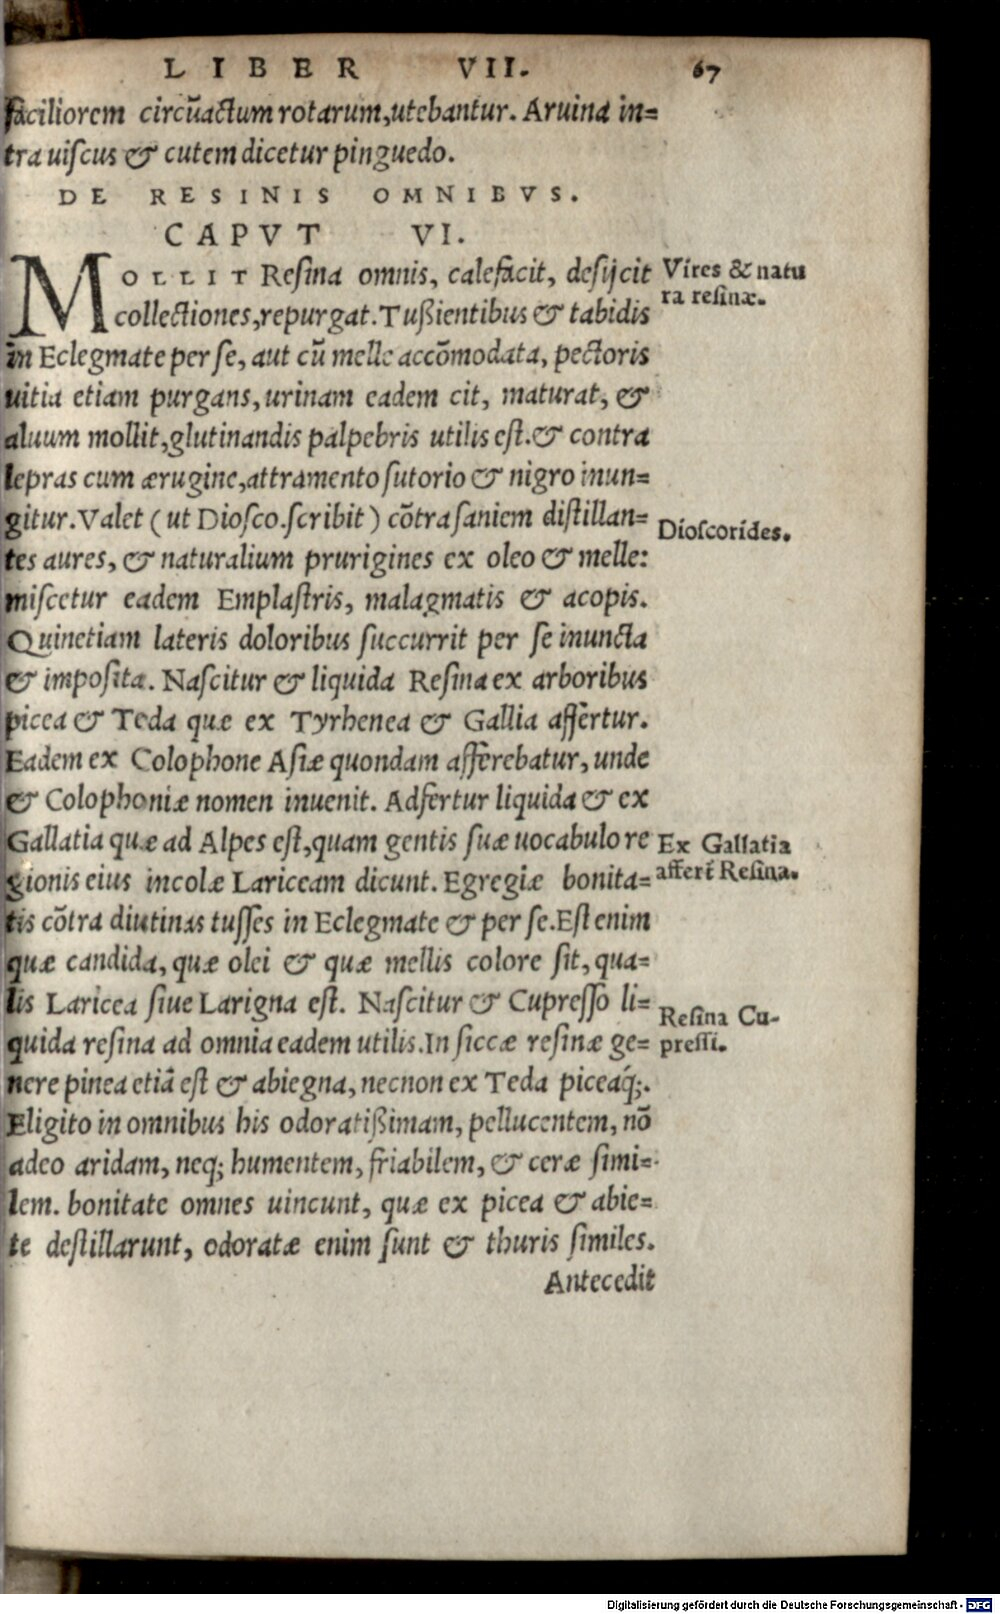 LIBER VII. 67
faciliorem circũactum rotarum,utebantur. Aruina in=
tra uiſcus & cutem dicetur pinguedo.
DE RESINIS OMNIBVS.
CAPVT VI.
MOLLIT Reſina omnis, calefacit, deſijcit
Vires & natu
ra reſinæ.
collectiones,repurgat.Tußientibus & tabidis
in Eclegmate per ſe, aut cũ melle accõmodata, pectoris
uitia etiam purgans,urinam eadem cit, maturat, &
aluum mollit,glutinandis palpebris utilis eſt.& contra
lepras cum ærugine,attramento ſutorio & nigro inun=
gitur.Valet (ut Dioſco.ſcribit) cõtra ſaniem diſtillan=
Dioſcorides.
tes aures, & naturalium prurigines ex oleo & melle:
miſcetur eadem Emplaſtris, malagmatis & acopis.
Quinetiam lateris doloribus ſuccurrit per ſe inuncta
& impoſita. Naſcitur & liquida Reſina ex arboribus
picea & Teda quæ ex Tyrhenea & Gallia affertur.
Eadem ex Colophone Aſiæ quondam afferebatur, unde
& Colophoniæ nomen inuenit. Adfertur liquida & ex
Gallatia quæ ad Alpes eſt,quam gentis ſuæ uocabulo re
Ex Gallatia
affert̃ Reſina.
gionis eius incolæ Lariceam dicunt. Egregiæ bonita=
tis cõtra diutinas tuſſes in Eclegmate & per ſe.Eſt enim
quæ candida, quæ olei & quæ mellis colore ſit, qua=
lis Laricea ſiue Larigna eſt. Naſcitur & Cupreſſo li=
Reſina Cu-
preſſi.
quida reſina ad omnia eadem utilis.In ſiccæ reſinæ ge=
nere pinea etiã eſt & abiegna, necnon ex Teda piceaq́;.
Eligito in omnibus his odoratißimam, pellucentem, nõ
adeo aridam, neq; humentem, friabilem, & ceræ ſimi=
lem. bonitate omnes uincunt, quæ ex picea & abie=
te deſtillarunt, odoratæ enim ſunt & thuris ſimiles.
Antecedit
Digitalisierung gefördert durch die Deutsche Forschungsgemeinschaft - DFG